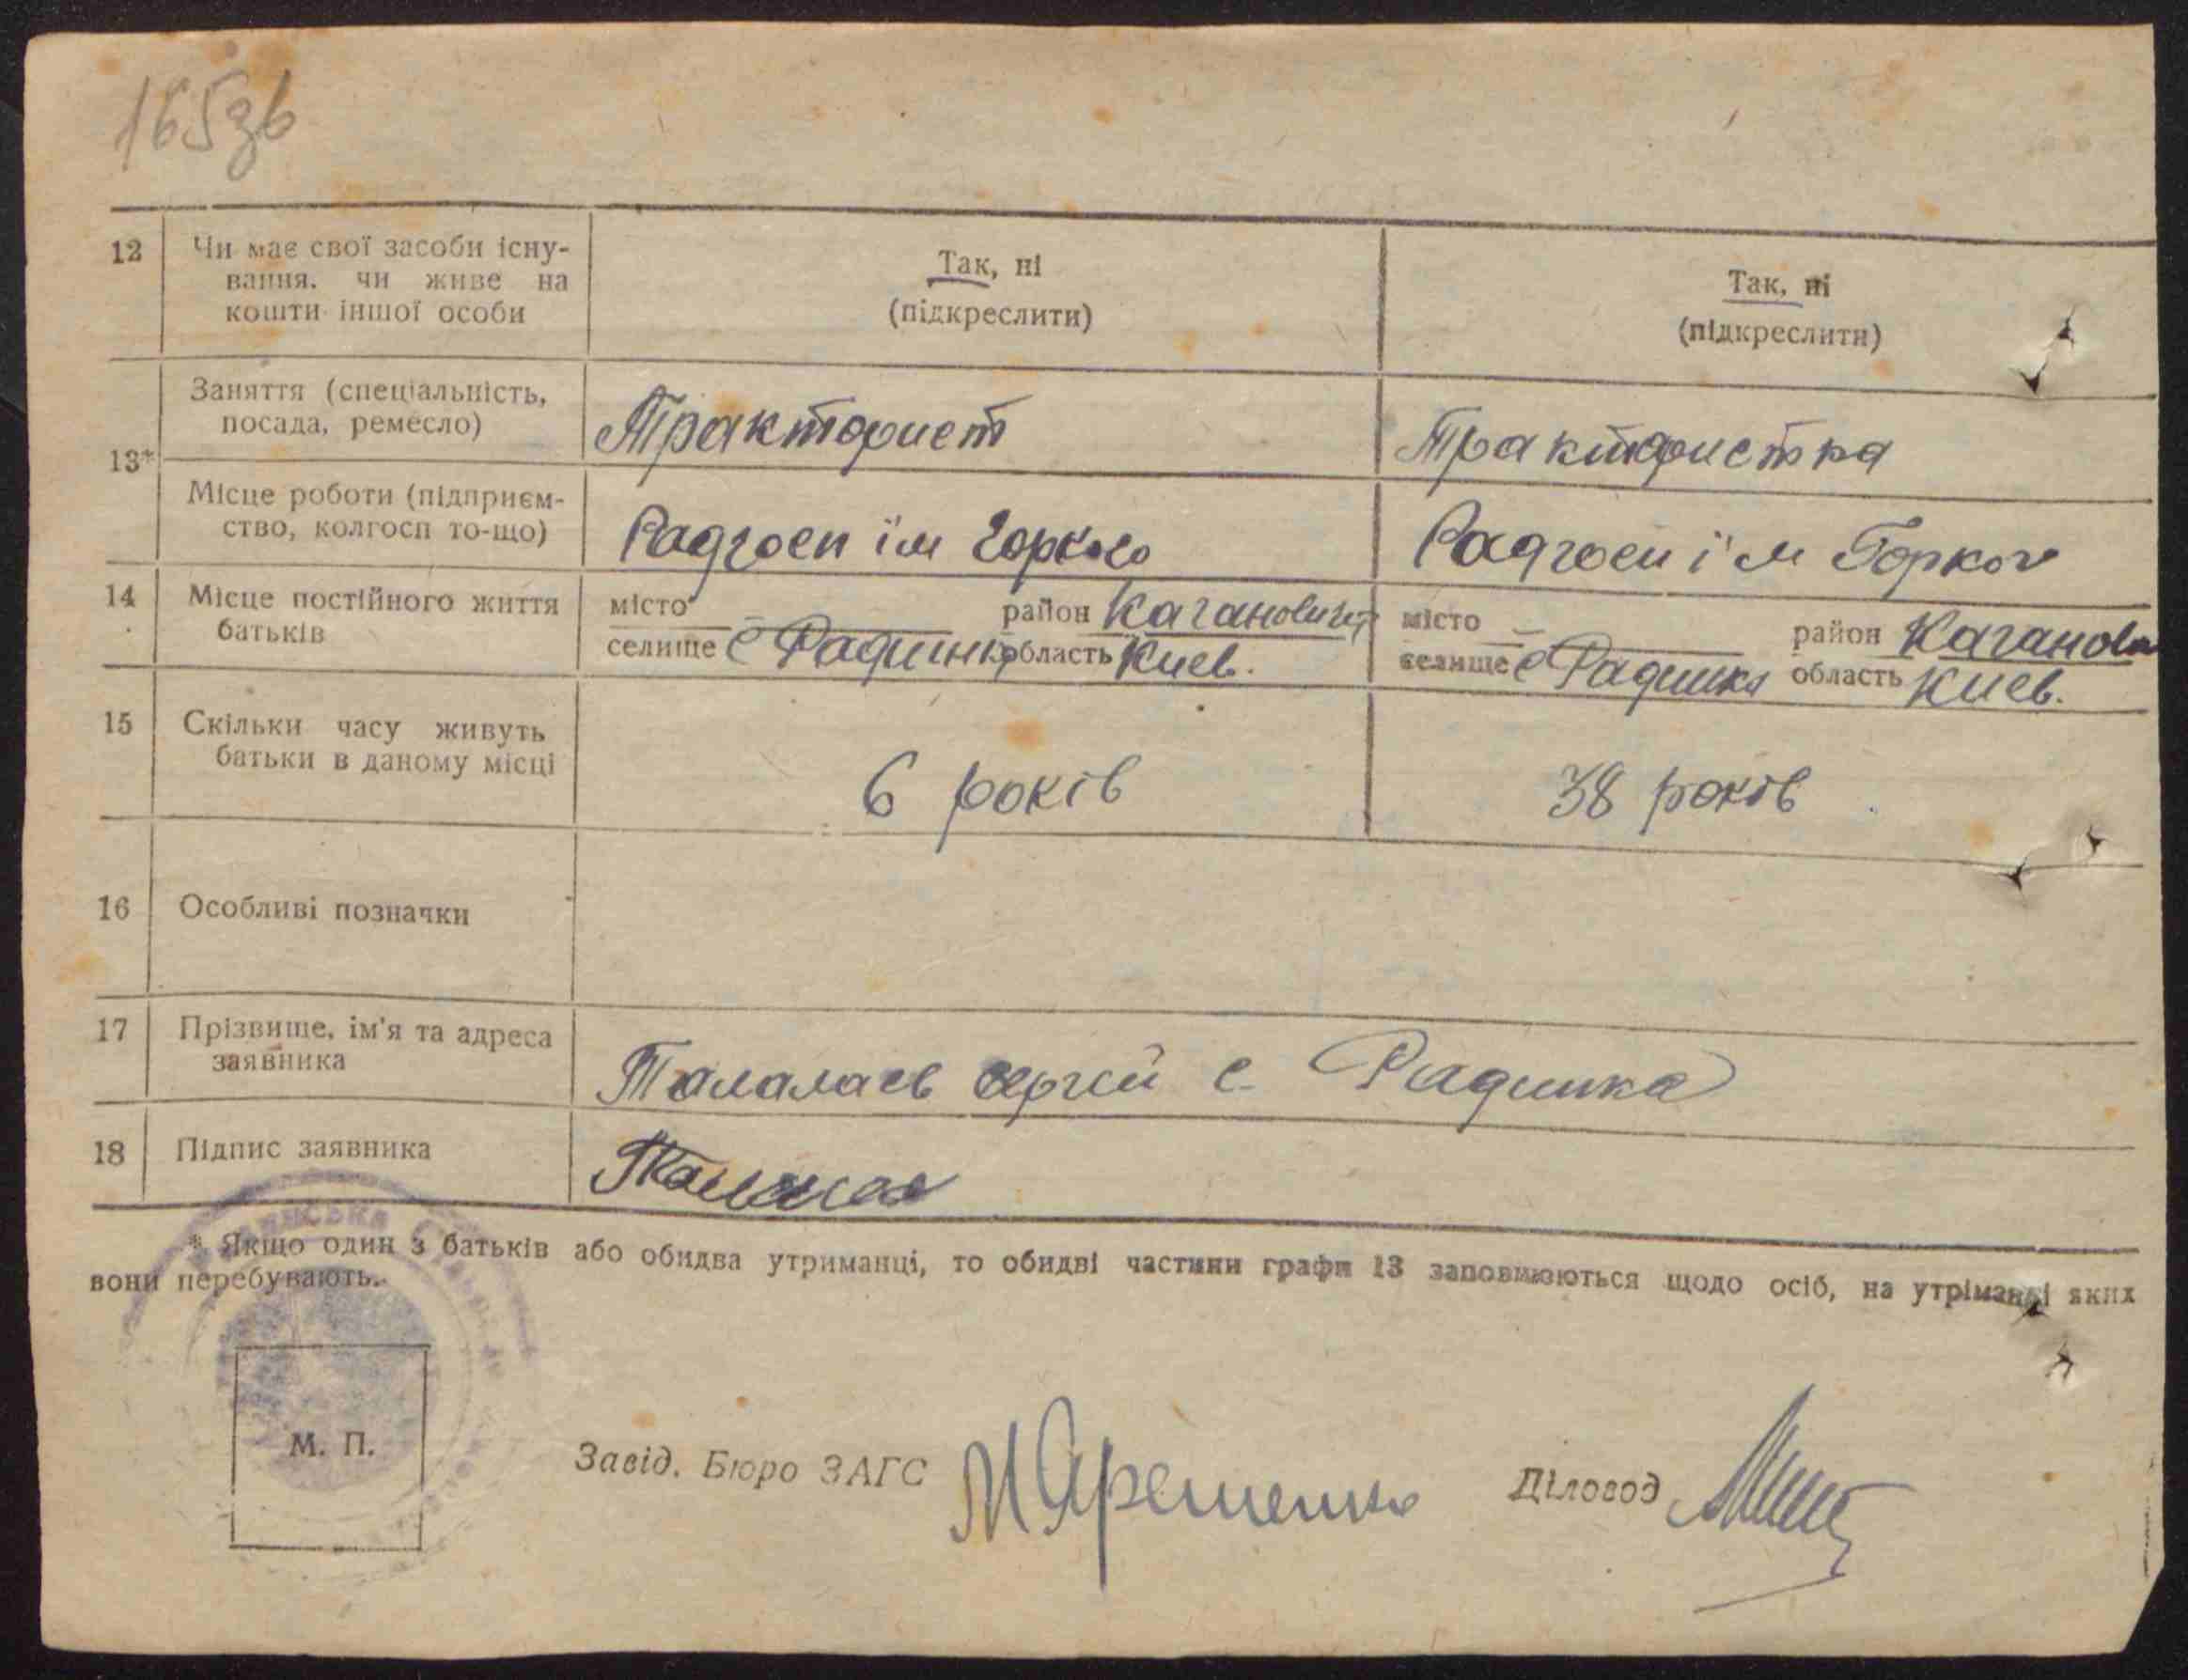 165зв
12 Чи має свої засоби існу-
вання, чи живе на
кошти іншої особи
Так, ні
(підкреслити)
Так, ні
(підкреслити)
13*
Заняття (спеціальність,
посада, ремесло)
Тракторист
Трактористка
Місце роботи (підприєм-
ство, колгосп то-що)
Радгосп їм Горкого
Радгосп ї'м Горког
14 Місце постійного життя
батьків
місто — район Каганович
селище с Радинка область Киев.
місто — район Каганови
селище с Радинка область Киев.
15 Скільки часу живуть
батьки в даному місці
6 років
38 років
16 Особливі позначки
17 Прізвище, ім'я та адреса
заявника
Талалаев сергій с. Радинка
18 Підпис заявника
* Якщо один з батьків або обидва утриманці, то обидві частини графи 13 заповнюються щодо осіб, на утріманні яких
вони перебувають.
М. П.
Завід. Бюро ЗАГС М Ярешенко Діловод